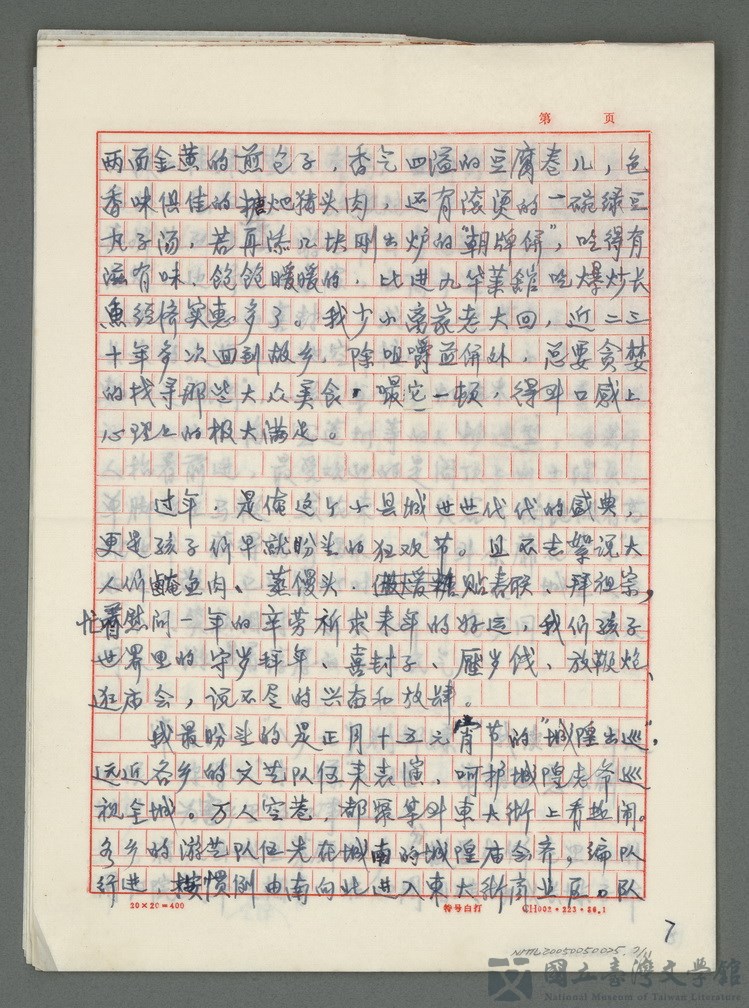 第　　页
两面金黄的煎包子，香气四溢的豆腐卷儿，色
香味俱佳的糖炖猪头肉，还有滚烫的一碗绿豆
丸子汤，若再添几块刚出炉的"朝牌併"，吃得有
滋有味、饱饱暖暖的，比进九华菜馆吃爆炒长
魚经济实惠多了。我少小离家老大回，近二三
十年多次回到故乡，除咀嚼煎併外，总要贪婪
的找寻那些大众美食，嘬它一顿，得到口感上
心理上的极大满足。
过年，是俺这个小县城世世代代的盛典
更是孩子们早就盼望的"狂欢"节。且不去絮说大
人们醃鱼肉、蒸馒头、贴春联、拜祖宗，
忙着慰问一年的辛劳祈求来年的好运，我们孩子
世界里的守岁拜年、喜封子、壓岁伐、放鞭炮、
逛庙会，说不尽的兴奋和放肆。
我最盼望的是正月十五元宵节的"城隍出巡"，
远近各乡的文艺队伍来表演，呵护城隍老爷巡
视全城。万人空巷，都聚等到東大街上看热闹。
各乡的游艺队伍先在城南的城隍庙会齐，编队
行进 按慣例由南向北进入東大街商业区。队
20×20=400
特号白打
CH002·323·86.1
7
NMTL20050050025
國立臺灣文學館
National Museum of Taiwan Literature